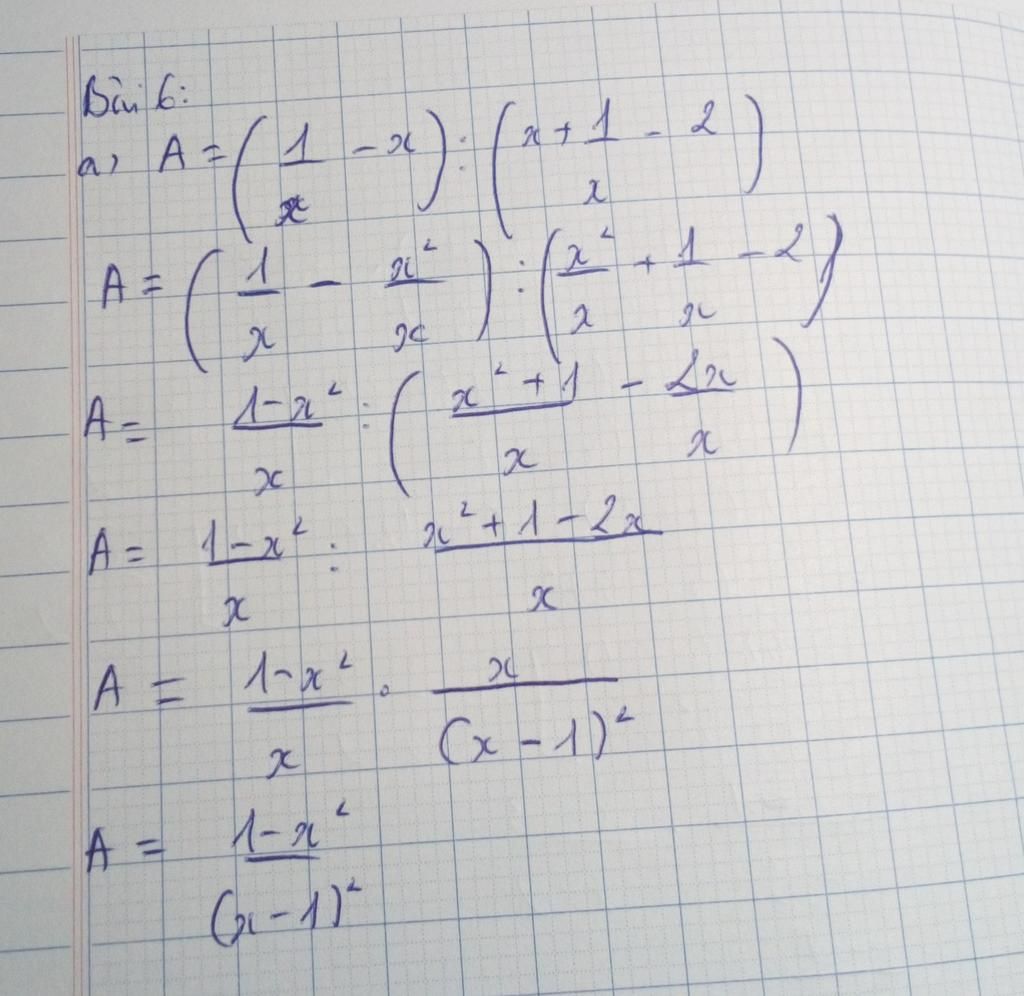 Bài 6:
a) A = (1/x - x) : (x + 1/x - 2)
A = (1/x - x²/x) : (x²/x + 1/x - 2)
A = (1-x²)/x : ((x²+1)/x - 2x/x)
A = (1-x²)/x : (x²+1-2x)/x
A = (1-x²)/x . x/(x-1)²
A = (1-x²)/(x-1)²